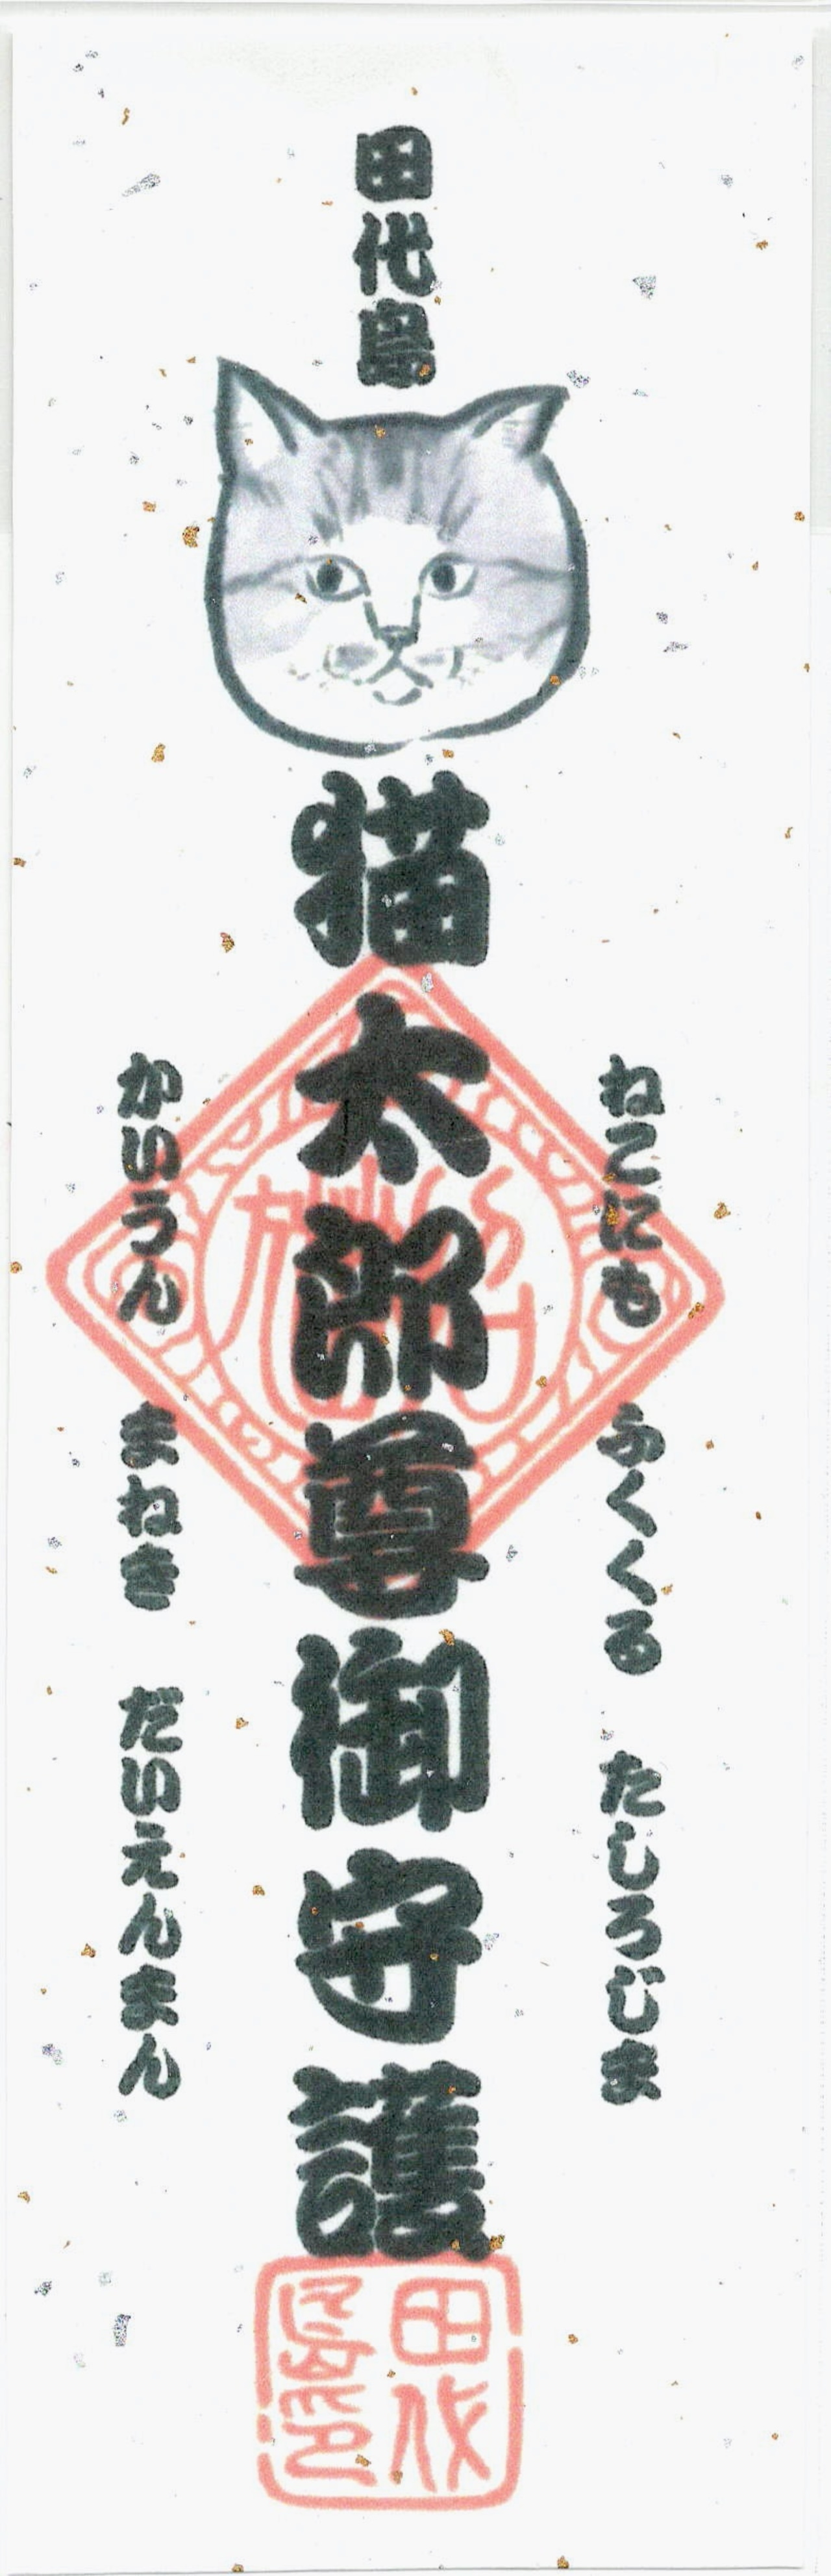 田代島
猫太郎尊御守護
ねこにも ふくくる たしろじま
かいうん まねき だいえんまん
田代
島印